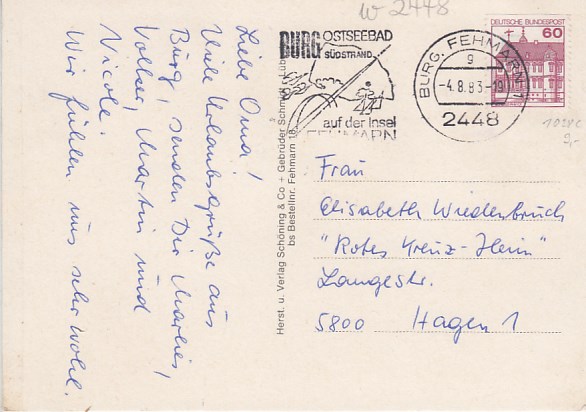 Liebe Oma!
Viele Urlaubsgrüße aus
Burg! senden Dir Marlies,
Volker, Martin und
Nicole.
Wir fühlen uns sehr wohl.
Herst. u. Verlag Schöning & Co + Gebrüder Schmidt
bs Bestellnr. Fehmarn 18
W 2448
BURG OSTSEEBAD
SÜDSTRAND
auf der Insel
FEHMARN
BURG, FEHMARN 1
g
-4.8.83-19
2448
DEUTSCHE BUNDESPOST
60
Frau
Elisabeth Wiedenbruch
"Rotes Kreuz-Heim"
Langestr.
5800 Hagen 1